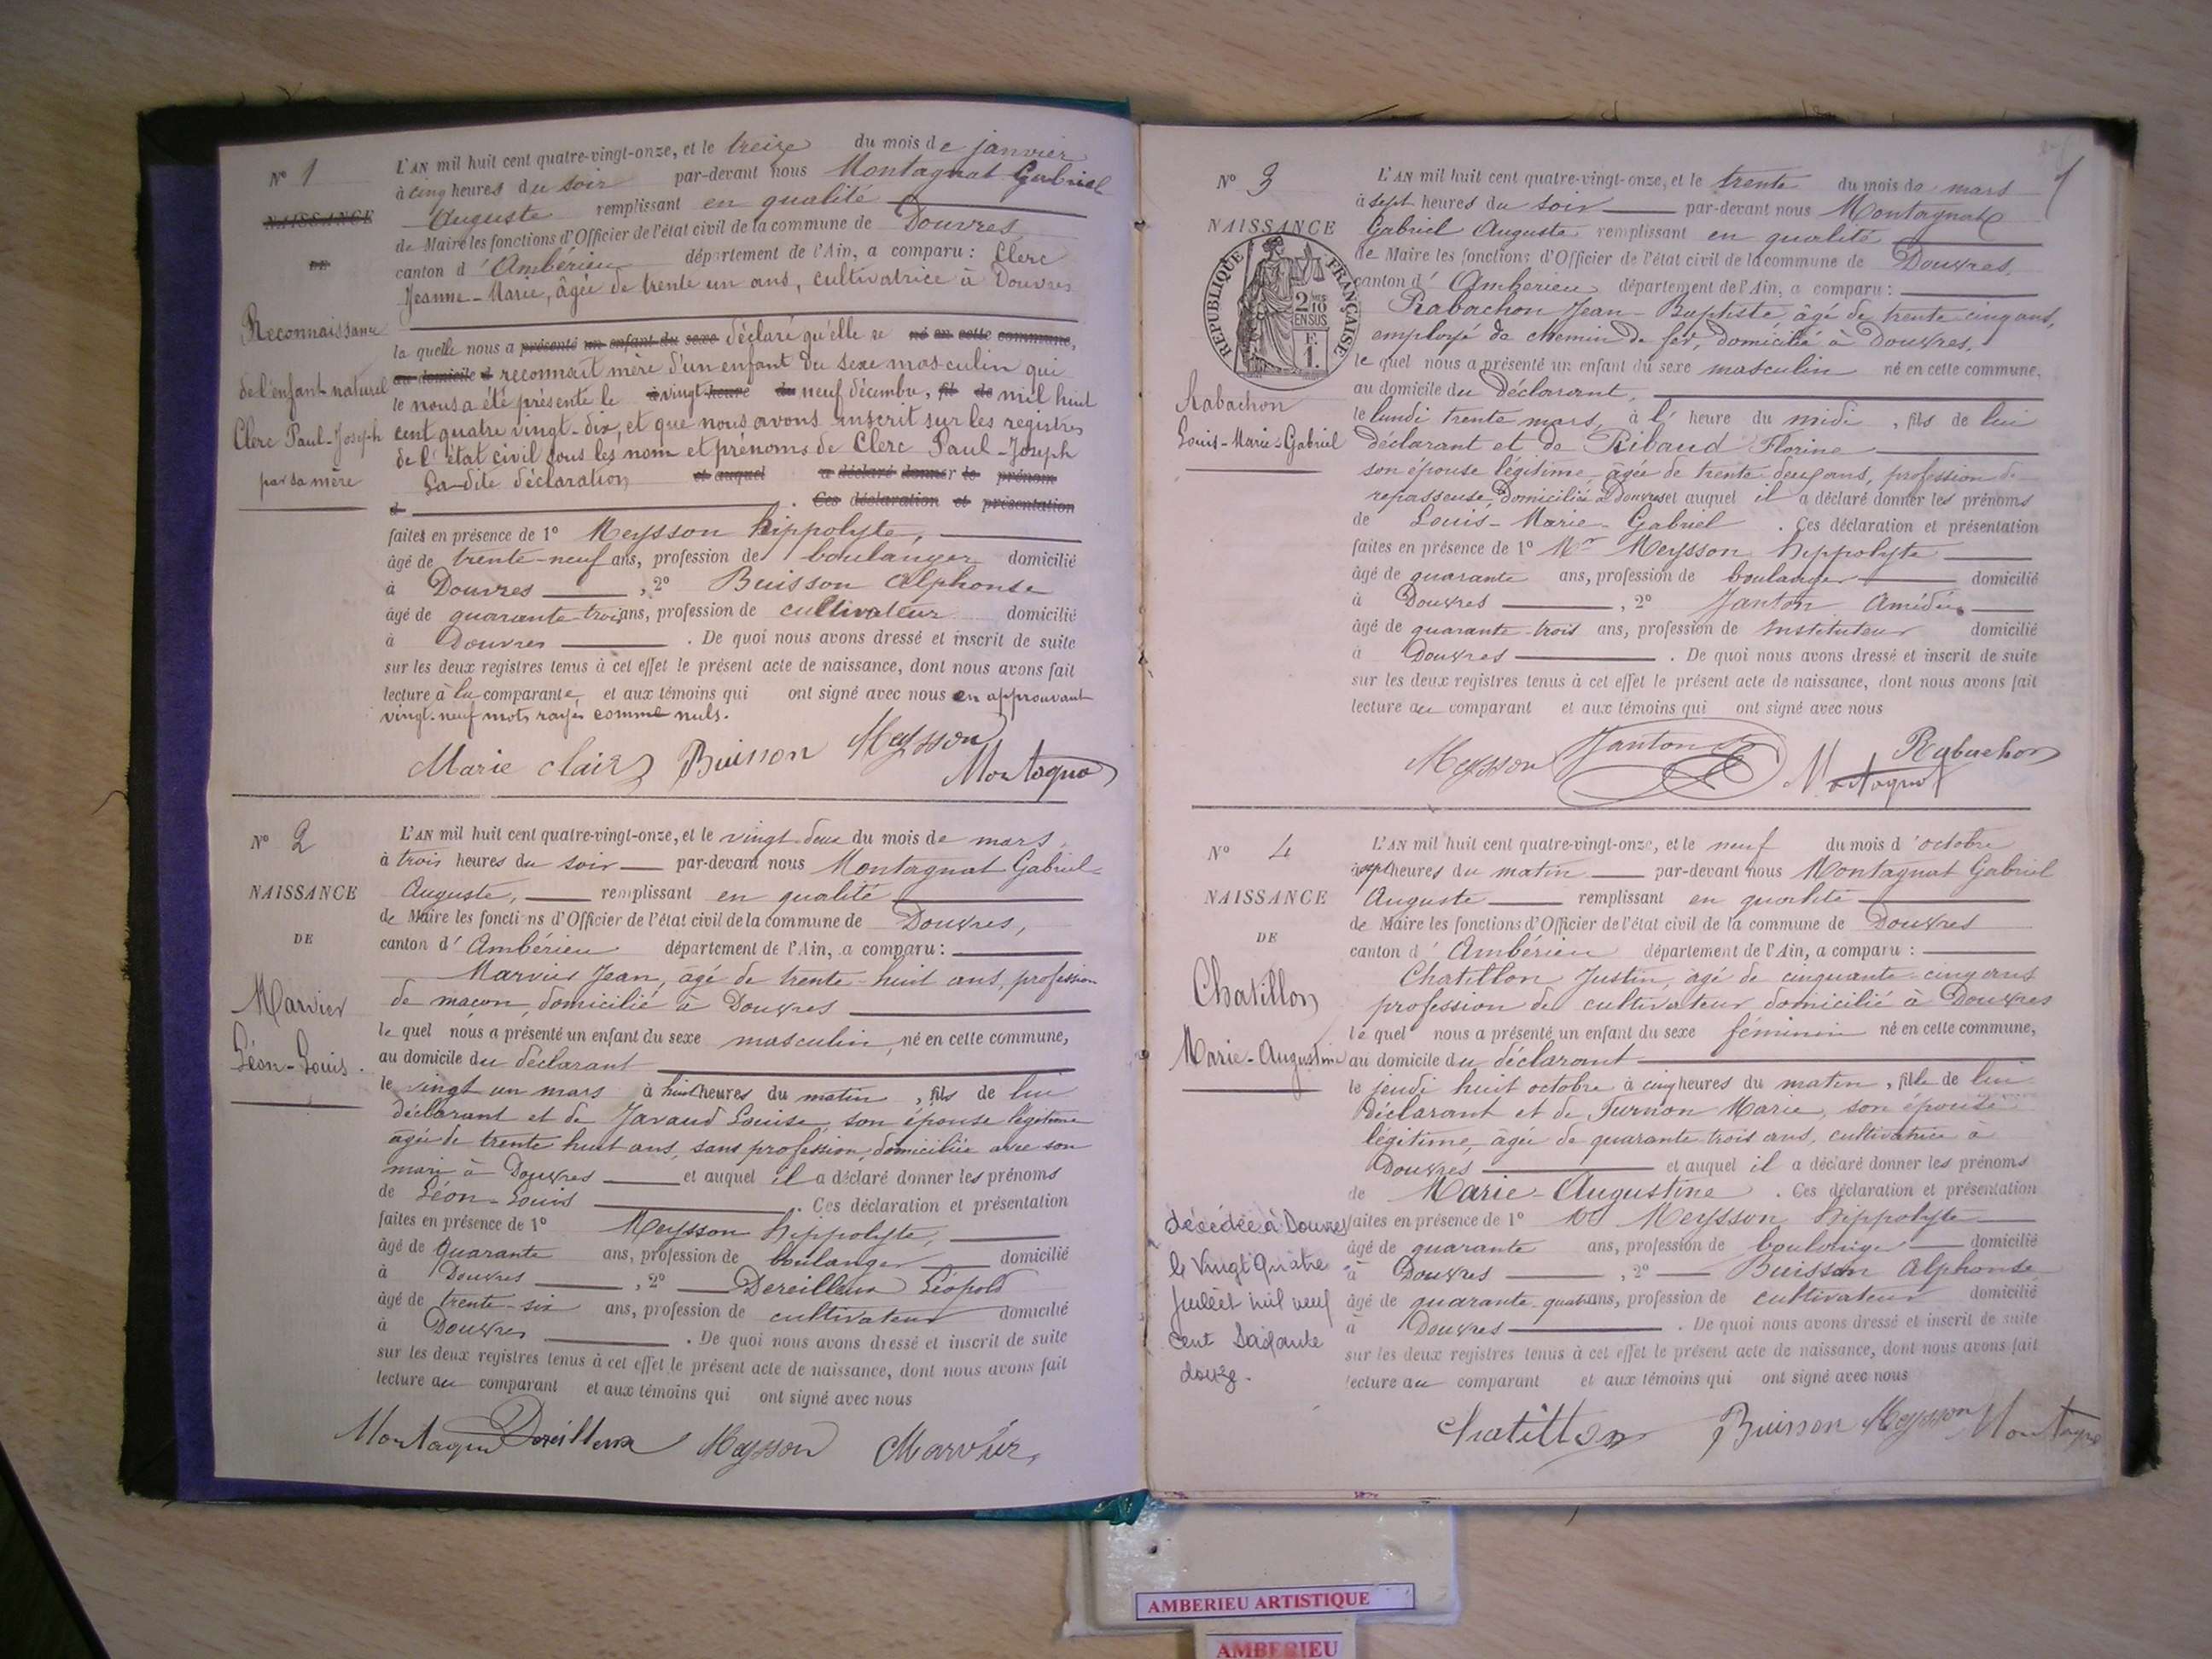 Nº 1
NAISSANCE
DE
Reconnaissance
de l'enfant naturel
Clerc Paul-Joseph
par sa mère
L'AN mil huit cent quatre-vingt-onze, et le treize du mois de janvier
à cinq heures du soir par-devant nous Montagnat Gabriel
Auguste remplissant en qualité
de Maire les fonctions d'Officier de l'état civil de la commune de Douvres
canton d'Ambérieu département de l'Ain, a comparu : Clerc
Jeanne-Marie, âgée de trente un ans, cultivatrice à Douvres
la quelle nous a présenté un enfant du sexe déclaré qu'elle se né en cette commune,
au domicile d reconnait mère d'un enfant du sexe masculin qui
le nous a été présenté le à vingt heure du neuf décembre, fil de mil huit
cent quatre vingt-dix, et que nous avons inscrit sur les registres
de l'état civil sous les nom et prénoms de Clerc Paul-Joseph
La dite déclaration et auquel a déclaré donner le prénom
d . Ces déclaration et présentation
faites en présence de 1º Meysson hippolyte,
âgé de trente-neuf ans, profession de boulanger domicilié
à Douvres , 2º Buisson Alphonse
âgé de quarante-trois ans, profession de cultivateur domicilié
à Douvres . De quoi nous avons dressé et inscrit de suite
sur les deux registres tenus à cet effet le présent acte de naissance, dont nous avons fait
lecture à la comparante et aux témoins qui ont signé avec nous en approuvant
vingt-neuf mots rayés comme nuls.
Marie clairc Buisson Meysson
Montagna
Nº 2
NAISSANCE
DE
Marvier
Léon-Louis.
L'AN mil huit cent quatre-vingt-onze, et le vingt-deux du mois de mars
à trois heures du soir par-devant nous Montagnat Gabriel-
Auguste, remplissant en qualité
de Maire les fonctions d'Officier de l'état civil de la commune de Douvres,
canton d'Ambérieu département de l'Ain, a comparu :
Marvier Jean, âgé de trente-huit ans, profession
de maçon, domicilié à Douvres
le quel nous a présenté un enfant du sexe masculin, né en cette commune,
au domicile du déclarant
le vingt un mars à huit heures du matin, fils de lui
déclarant et de Javaud Louise, son épouse légitime
âgée de trente huit ans, sans profession, domiciliée avec son
mari à Douvres et auquel il a déclaré donner les prénoms
de Léon-Louis . Ces déclaration et présentation
faites en présence de 1º Meysson hippolyte,
âgé de quarante ans, profession de boulanger domicilié
à Douvres , 2º Dereilleux Léopold
âgé de trente-six ans, profession de cultivateur domicilié
à Douvres . De quoi nous avons dressé et inscrit de suite
sur les deux registres tenus à cet effet le présent acte de naissance, dont nous avons fait
lecture au comparant et aux témoins qui ont signé avec nous
Montagna Dereilleux Meysson Marvier
Nº 3
NAISSANCE
RÉPUBLIQUE FRANÇAISE
2/10
EN SUS
F.
1.
Rabachon
Louis-Marie-Gabriel
L'AN mil huit cent quatre-vingt-onze, et le trente du mois de mars
à sept heures du soir par-devant nous Montagnat
Gabriel Auguste remplissant en qualité
de Maire les fonctions d'Officier de l'état civil de la commune de Douvres,
canton d'Ambérieu département de l'Ain, a comparu :
Rabachon Jean-Baptiste âgé de trente cinq ans,
employé de chemin de fer, domicilié à Douvres.
le quel nous a présenté un enfant du sexe masculin né en cette commune,
au domicile du déclarant,
le lundi trente mars, à l'heure du midi, fils de lui
déclarant et de Ribaud Florine
son épouse légitime, âgée de trente deux ans, profession de
repasseuse, domiciliée à Douvres et auquel il a déclaré donner les prénoms
de Louis-Marie-Gabriel . Ces déclaration et présentation
faites en présence de 1º Mr Meysson hippolyte
âgé de quarante ans, profession de boulanger domicilié
à Douvres , 2º Janton Amédée
âgé de quarante-trois ans, profession de Instituteur domicilié
à Douvres . De quoi nous avons dressé et inscrit de suite
sur les deux registres tenus à cet effet le présent acte de naissance, dont nous avons fait
lecture au comparant et aux témoins qui ont signé avec nous
Meysson Janton Montagnat Rabachon
Nº 4
NAISSANCE
DE
Chatillon
Marie-Augustine
décédée à Douvres
le Vingt Quatre
Juillet mil neuf
cent Soixante
douze.
L'AN mil huit cent quatre-vingt-onze, et le neuf du mois d'octobre
à sept heures du matin par-devant nous Montagnat Gabriel
Auguste remplissant en qualité
de Maire les fonctions d'Officier de l'état civil de la commune de Douvres
canton d'Ambérieu département de l'Ain, a comparu :
Chatillon Justin, âgé de cinquante-cinq ans
profession de cultivateur domicilié à Douvres
le quel nous a présenté un enfant du sexe féminin né en cette commune,
au domicile du déclarant
le jeudi huit octobre à cinq heures du matin, fille de lui
déclarant et de Furnon Marie, son épouse
légitime, âgée de quarante-trois ans, cultivatrice à
Douvres et auquel il a déclaré donner les prénoms
de Marie-Augustine . Ces déclaration et présentation
faites en présence de 1º Meysson hippolyte
âgé de quarante ans, profession de boulanger domicilié
à Douvres , 2º Buisson Alphonse
âgé de quarante-quatre ans, profession de cultivateur domicilié
à Douvres . De quoi nous avons dressé et inscrit de suite
sur les deux registres tenus à cet effet le présent acte de naissance, dont nous avons fait
lecture au comparant et aux témoins qui ont signé avec nous
Chatillon Buisson Meysson Montagna
AMBERIEU ARTISTIQUE
AMBERIEU